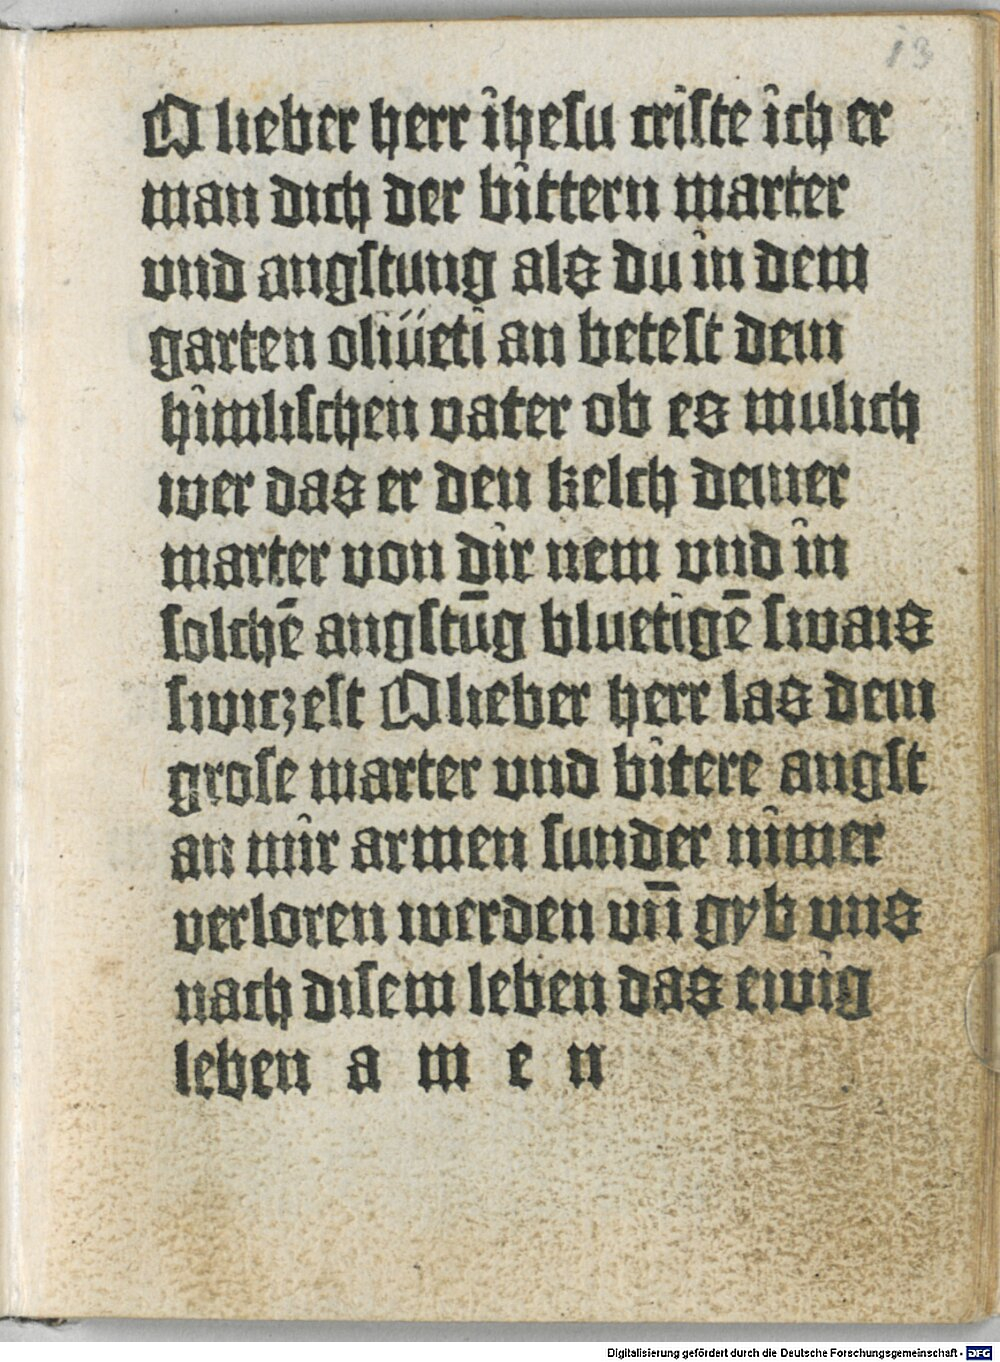 13
O lieber herr ihesu criste ich er
man dich der bittern marter
vnd angstung als du in dem
garten oliüeti an betest dein
himlischen vater ob es mulich
wer das er den kelch deiner
marter von dir nem vnd in
solchē angstūg bluetigē swais
swiczest O lieber herr las dein
grose marter vnd bitere angst
an mir armen sunder nimer
verloren werden vn̄ gyb vns
nach disem leben das ewig
leben a m e n
Digitalisierung gefördert durch die Deutsche Forschungsgemeinschaft - DFG